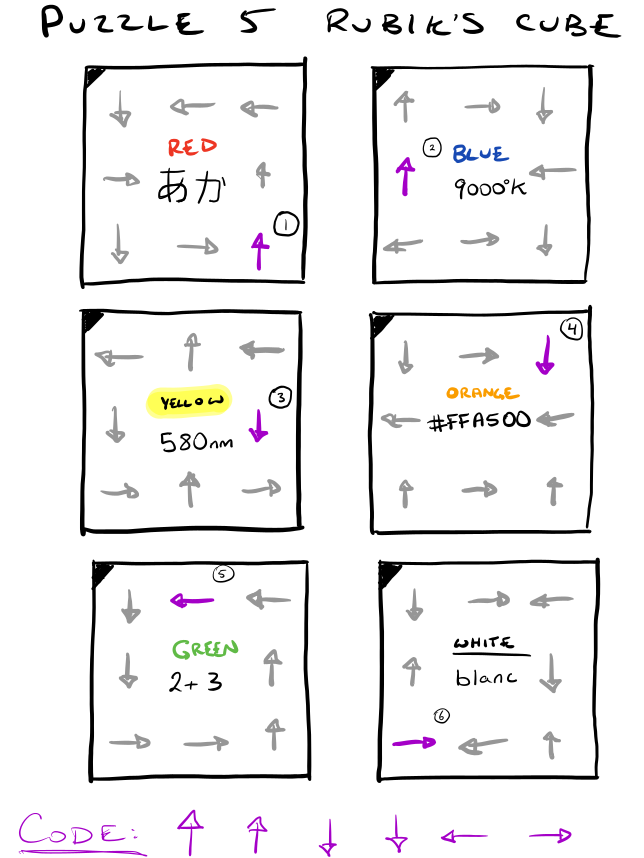 PUZZLE 5 RUBIK'S CUBE
↓ ← ←
RED
→ あか ↑
1
↓ → ↑
↑ → ↓
2 BLUE
↑ 9000°K ←
← → ↓
← ↑ ←
YELLOW 3
↓ 580nm ↓
→ ↑ →
4
↓ → ↓
ORANGE
← #FFA500 ←
↑ → ↑
5
↓ ← ←
GREEN
↓ 2+3 ↑
→ → ↑
↓ → ←
WHITE
↑ blanc ↓
6
→ ← ↑
CODE: ↑ ↑ ↓ ↓ ← →